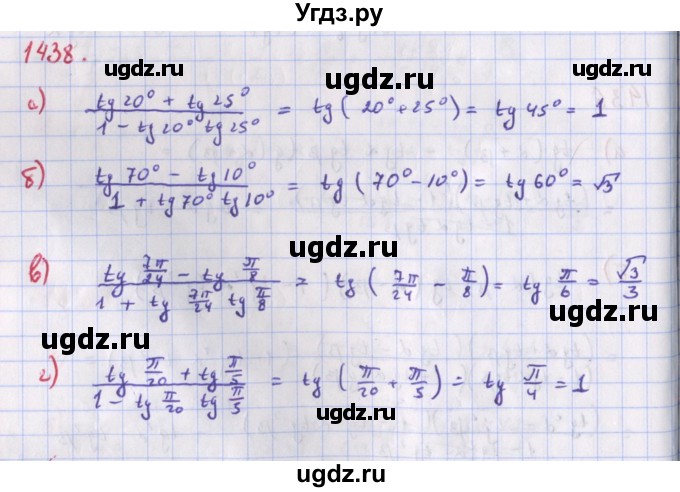 Угдз.ру
1438.
ugdz.ru ugdz.ru
ugdz.ru
а) (tg 20° + tg 25°)/(1 - tg 20° tg 25°) = tg (20° + 25°) = tg 45° = 1
ugdz.ru ugdz.ru
б) (tg 70° - tg 10°)/(1 + tg 70° tg 10°) = tg (70° - 10°) = tg 60° = √3
ugdz.ru
в) (tg 7π/24 - tg π/8)/(1 + tg 7π/24 tg π/8) = tg (7π/24 - π/8) = tg π/6 = √3/3
ugdz.ru ugdz.ru
г) (tg π/20 + tg π/5)/(1 - tg π/20 tg π/5) = tg (π/20 + π/5) = tg π/4 = 1
ugdz.ru
ugdz.ru ugdz.ru
Угдз.ру